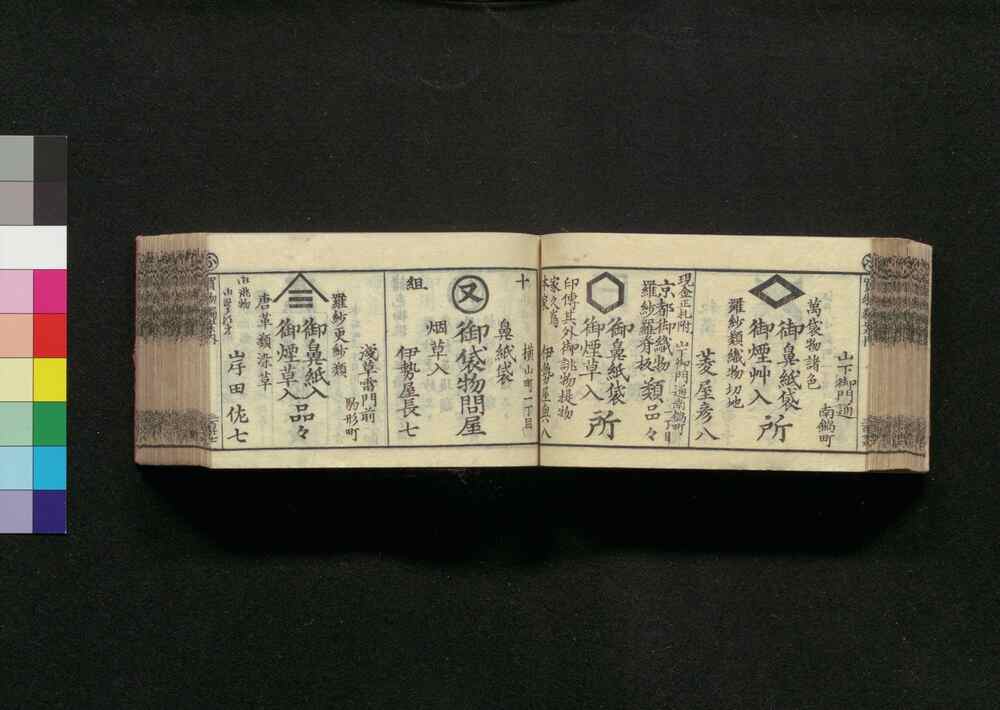 山下御門通
南鍋町
萬袋物諸色
御鼻紙袋
御煙艸入
所
羅紗類織物切地
菱屋彦八
現金正札附
山下御門通南鍋町
二丁目
京都御織物
羅紗羅脊板
類品々
御鼻紙袋
御煙草入
所
印傳其外御誂物提物
十
組
横山町一丁目
鼻紙袋
又
御袋物問屋
烟草入
伊勢屋長七
浅草雷門前
駒形町
羅紗更紗類
御鼻紙入
御煙草入
品々
唐革類染革
岸田佐七